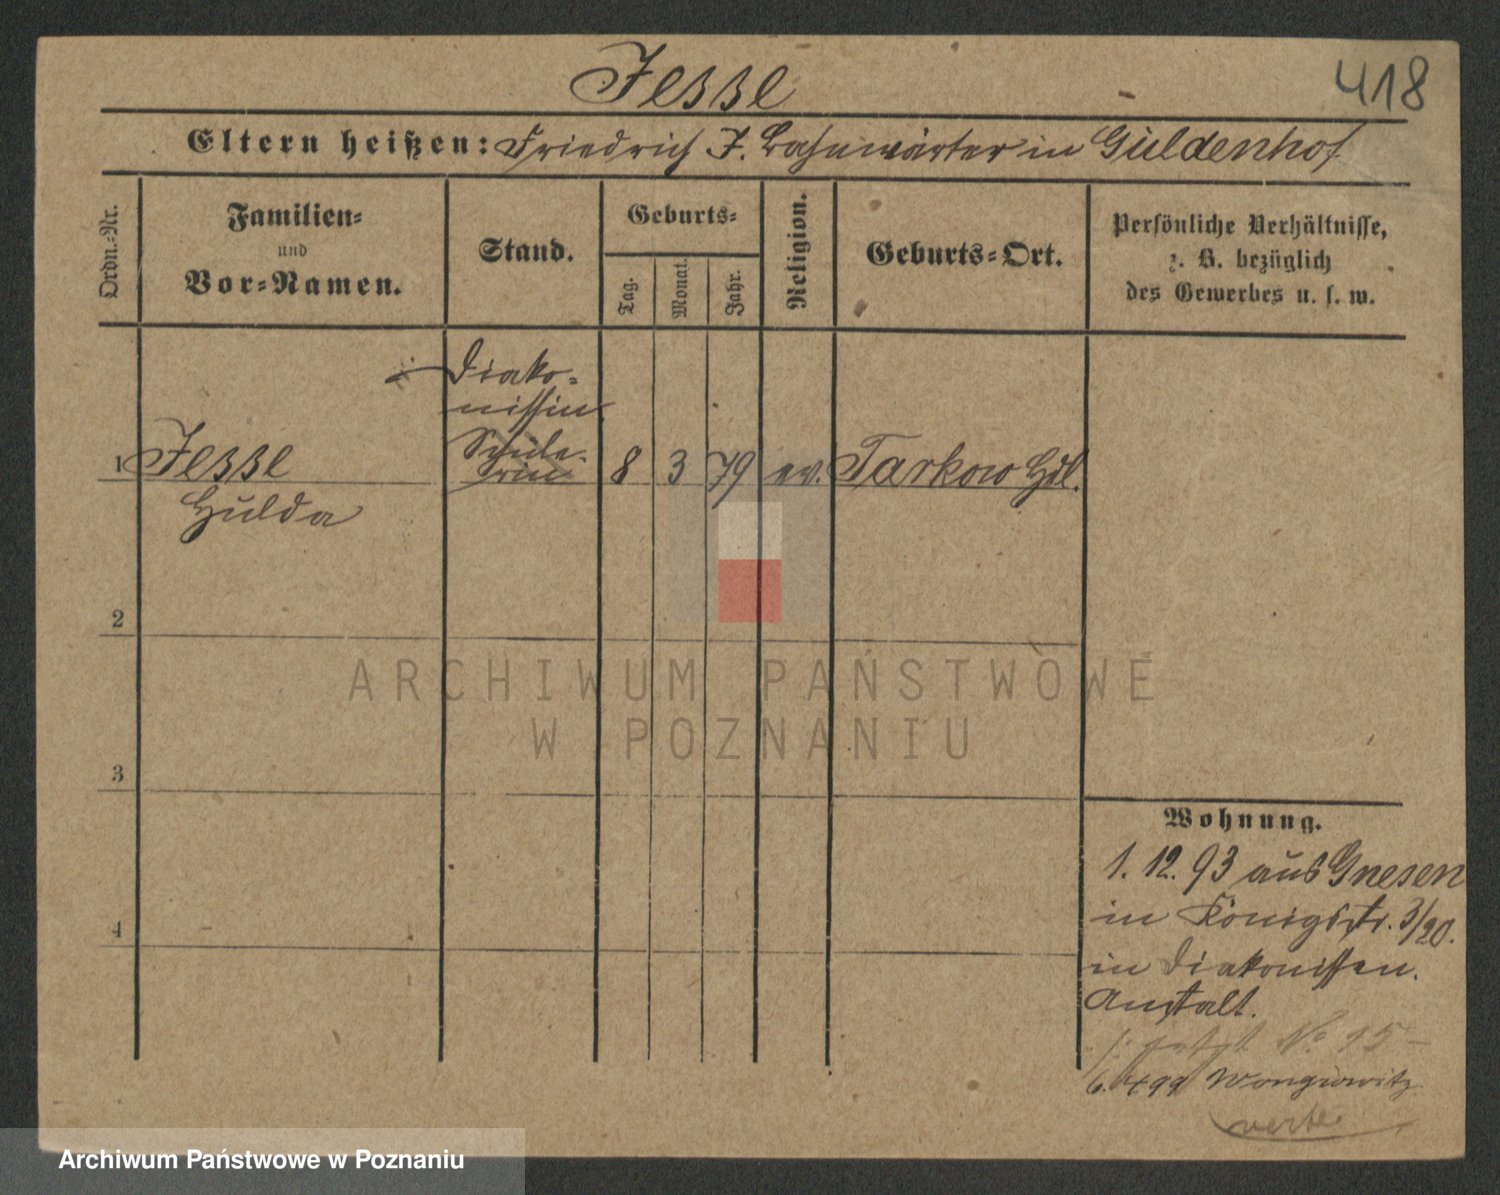 Jesse
418
Eltern heißen: Friedrich J. Bahnwärter in Güldenhof
Ordn.-Nr.
Familien-
und
Vor-Namen.
Stand.
Geburts-
Tag.
Monat.
Jahr.
Religion.
Geburts-Ort.
Persönliche Verhältnisse,
z. B. bezüglich
des Gewerbes u. s. w.
Diako-
nissin
1 Jesse Schüle- 8 3 79 ev. Tarkow Hdl.
rin
Hulda
2
3
4
ARCHIWUM PAŃSTWOWE
W POZNANIU
Wohnung.
1. 12. 93 aus Gnesen
in Königstr. 3/20.
in Diakonissen.
Anstalt.
jetzt No 15
6. 4 99 Wongrowitz
verte
Archiwum Państwowe w Poznaniu